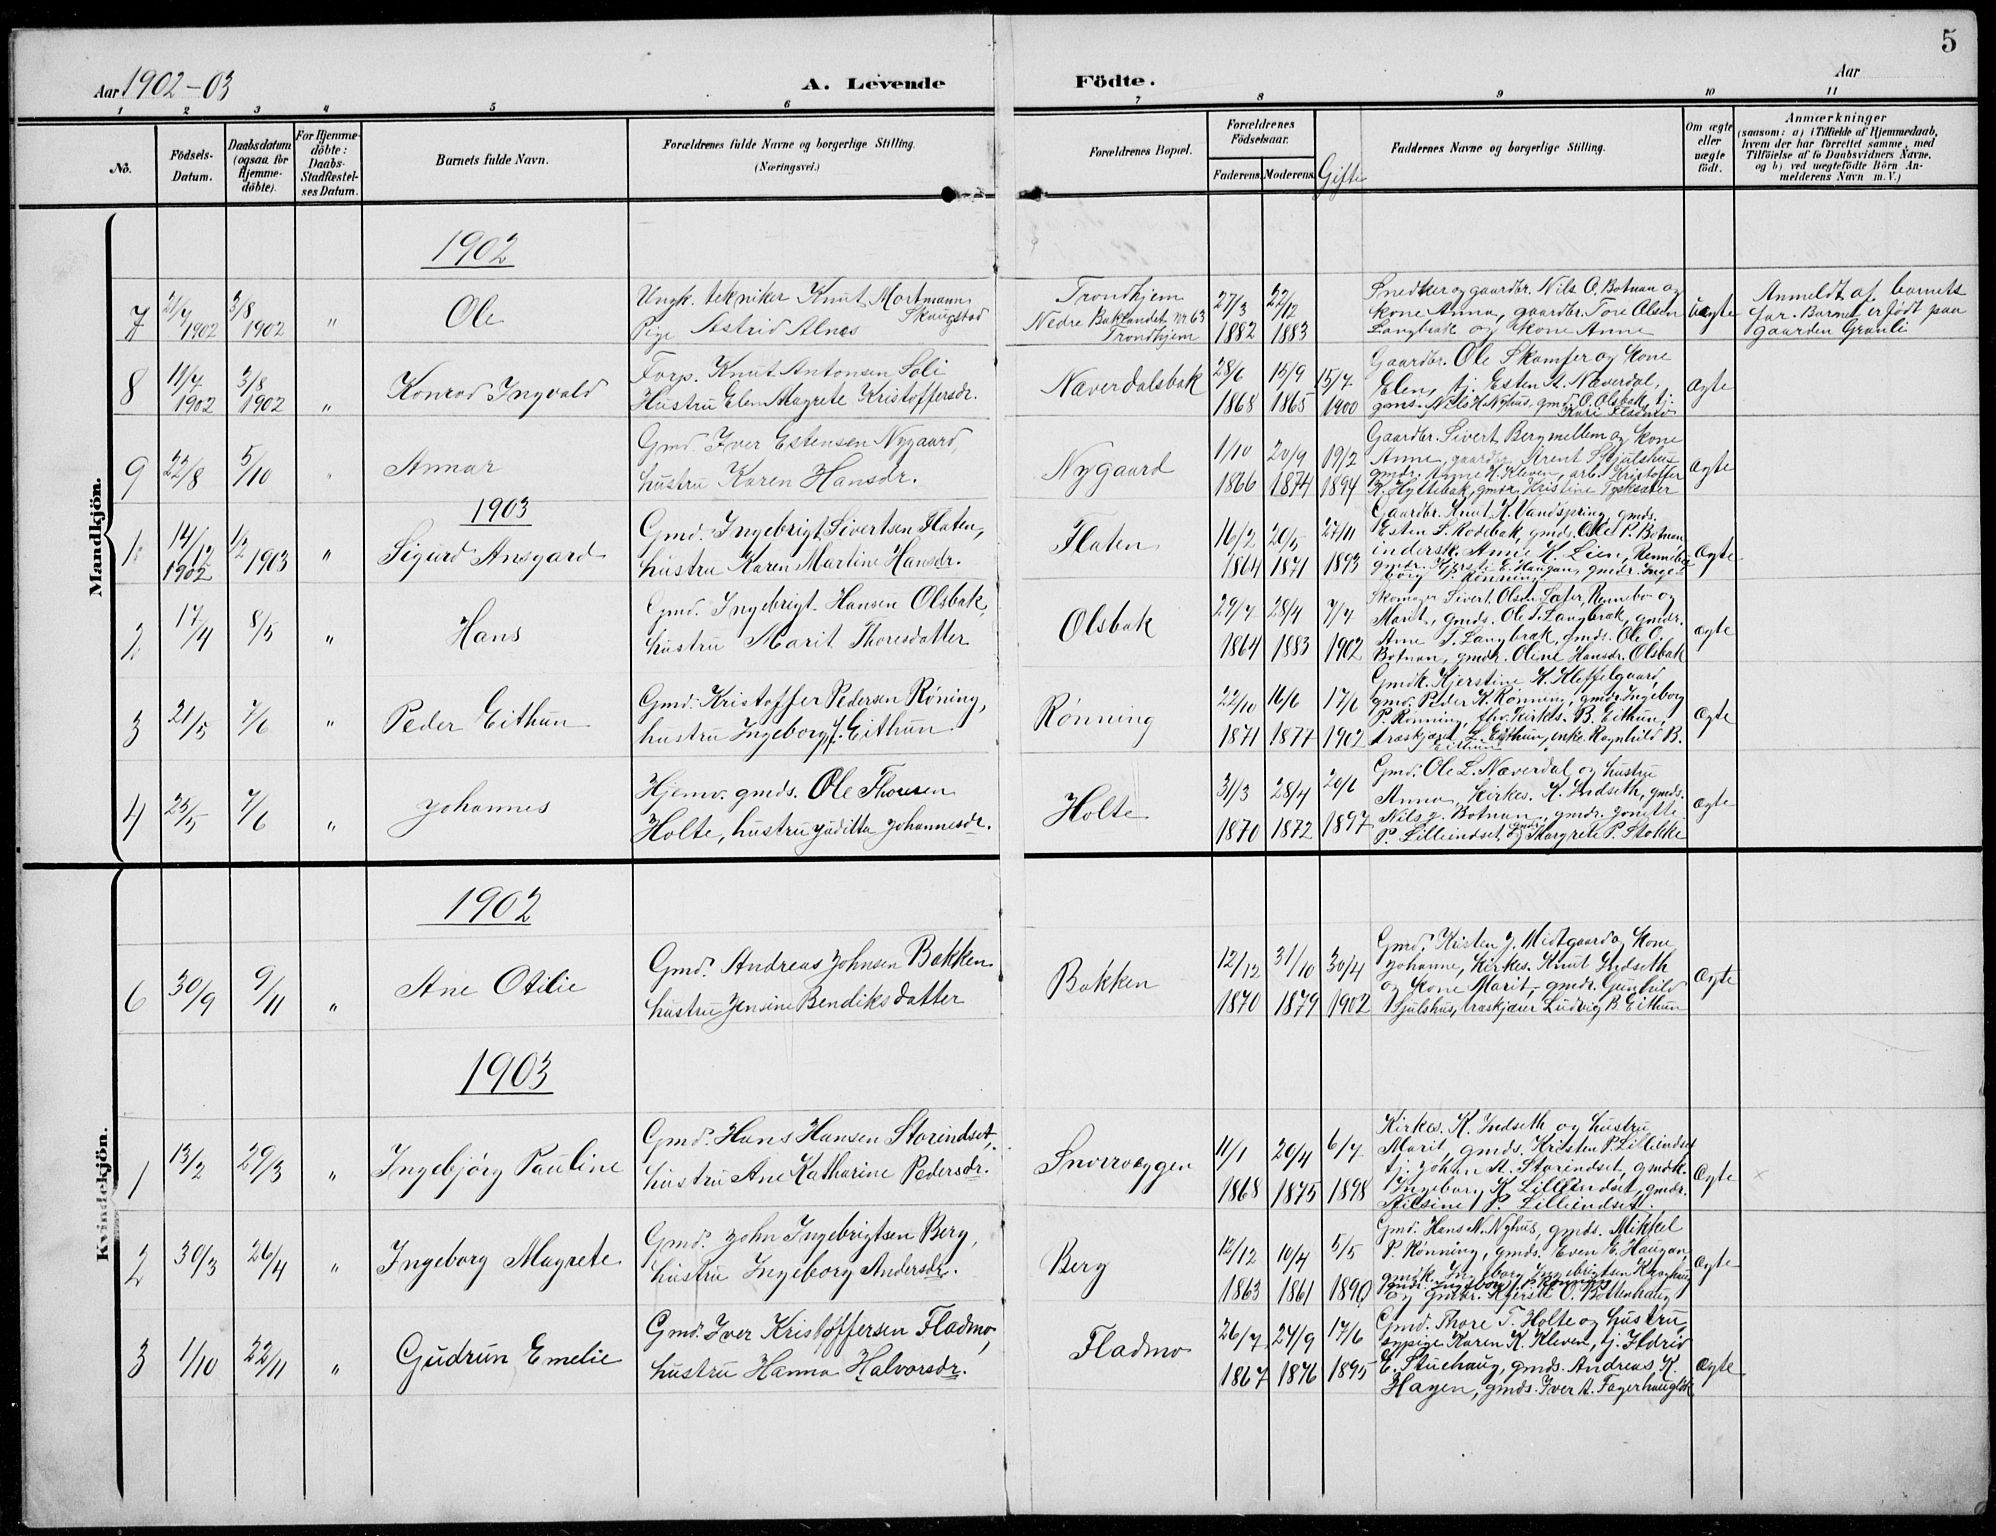 5
Aar 1902-03
A. Levende Födte.
Aar
1 2 3 4 5 6 7 8 9 10 11
No.
Födsels-Datum.
Daabsdatum (ogsaa for Hjemme-döbte).
For Hjemme-döbte: Daabs-Stadfæstel-ses Datum.
Barnets fulde Navn.
Forældrenes fulde Navne og borgerlige Stilling.
(Næringsvei.)
Forældrenes Bopæl.
Forældrenes Födselsaar.
Faderens. Moderens.
Gifte
Faddernes Navne og borgerlige Stilling.
Om ægte eller uægte födt.
Anmærkninger
(saasom: a) i Tilfælde af Hjemmedaab,
hvem der har forrettet samme, med
Tilföielse af to Daabsvidners Navne,
og b) ved uægtefödte Börn An-
melderens Navn m. V.)
Mandkjön.
1902
7 21/7 1902 3/8 1902 " Ole
Ungk. tekniker Knut Mortmann Skaugstad
Pige Astrid Alnæs
Trondhjem
Nedre Baklandet nr 63
Trondhjem
27/3 1882 22/12 1883
Snedker og gaardbr. Nils O. Botnan og
kone Anna, gaardbr. Tore Olsen
Langbrak og kone Anne
Uægte
Anmeldt af barnets
far. Barnet er født paa
gaarden Granli
8 11/7 1902 3/8 1902 " Konrad Ingvald
Forp. Knut Antonsen Soli
Hustru Elen Magrete Kristoffersdr.
Næverdalsbak
28/6 1868 15/9 1865 15/7 1900
Gaardbr. Ole Skamfer og kone
Elen, tj. Esten A. Næverdal,
gms. Nils H. Nyhus, gmd. O. Olsbak, tj.
Kari Fladmo
Ægte
9 22/8 5/10 " Annar
Gmd. Iver Estensen Nygaard,
hustru Karen Hansdr.
Nygaard
1/10 1866 20/9 1874 19/2 1894
Gaardbr. Sivert Bergmellem og kone
Anne, gaardbr. Arent Stjulshus
gmdr. Anne K. Kleven, arb. Kristoffer
K. Hyttebak, gmdr. Kristine Tysksæter
Ægte
1903
1. 14/12 1902 1/2 1903 " Sigurd Ansgard
Gmd. Ingebrigt Sivertsen Flaten,
hustru Karen Martine Hansdr.
Flaten
16/2 1864 20/5 1871 27/11 1893
Gaardbr. Knut K. Vandspring, gmds.
Esten S. Rodebak, gmds. Ole P. Botnan
indersk. Anne K. Lien, Rennebu
gmdr. Kjersti E. Haugan, gmdr. Inge-
borg P. Rönning
Ægte
2 17/4 8/5 " Hans
Gmd. Ingebrigt Hansen Olsbak,
hustru Marit Thoresdatter
Olsbak
29/7 1864 28/4 1883 7/7 1902
Skomager Sivert Olsen Sæter, Rennebu og
Marit, gmds. Ole T. Langbrak, gmdr.
Ane T. Langbrak, gmds. Ole O.
Botnan, gmdr. Oline Hansdr. Olsbak
Ægte
3 21/5 7/6 " Peder Eithun
Gmd. Kristoffer Pedersen Röning,
hustru Ingeborg f. Eithun
Rönning
22/10 1871 16/6 1877 17/6 1902
Gmdk. Kjerstine K. Kleffelgaard,
gmd. Peder K. Rönning, gmdr. Ingeborg
P. Rönning, fhv. kirkes. B. Eithun,
træskjærer L. Eithun, enke Ragnhild B.
Eithun
Ægte
4 25/5 7/6 " Johannes
Hjemv. gmds. Ole Thoresen
Holte, hustru Juditta Johannesdr.
Holte
31/3 1870 28/4 1872 20/6 1897
Gmd. Ole L. Næverdal og hustru
Anna, kirkes. K. Indseth, gmds.
Nils J. Botnan, gmdr. Jonette
P. Lilleindset, og gmdr. Margrete P. Stokke
Ægte
Kvindekjön.
1902
6 30/9 9/11 " Ane Otilie
Gmd. Andreas Johnsen Bakken
hustru Jensine Bendiksdatter
Bakken
12/12 1870 31/10 1879 30/4 1902
Gmd. Kristen J. Midtgaard og kone
Johanne, kirkes. Knut Indseth
og kone Marit, gmdr. Gunhild
Stjulshus, træskjærer Ludvig B. Eithun
Ægte
1903
1 13/2 29/3 " Ingebjörg Pauline
Gmd. Hans Hansen Storindset,
hustru Ane Katharine Pedersdr.
Snorroeggen
11/1 1868 20/4 1875 6/7 1898
Kirkes. K. Indseth og hustru
Marit, gmds. Kristen P. Lilleindset
tj. Johan A. Storindset, gmdk.
Ingeborg K. Lilleindset, gmdr.
Nilsine P. Lilleindset.
Ægte ×
2 30/3 26/4 " Ingeborg Magrete
Gmd. John Ingebrigtsen Berg,
hustru Ingeborg Andersdr.
Berg
12/12 1863 10/4 1861 5/5 1890
Gmd. Hans N. Nyhus, gmds. Mikkel
P. Rönning, gmds. Even E. Haugan,
gmdk. Ingeborg Ingebrigtsen Kroghaug
gmdr. Ingeborg P. Rönning
og gmdr. Kjersti O. Bottenhaug
Ægte
3 1/10 22/11 " Gudrun Emelie
Gmd. Iver Kristoffersen Fladmo,
hustru Hanna Halvorsdr.
Fladmo
26/7 1867 24/9 1876 17/6 1895
Gmd. Thore T. Holte og hustru,
sypige Karen K. Kleven, tj. Hdrid
E. Stuehaug, gmds. Andreas K.
Hagen, gmds. Iver A. Fagerhaug
Ægte